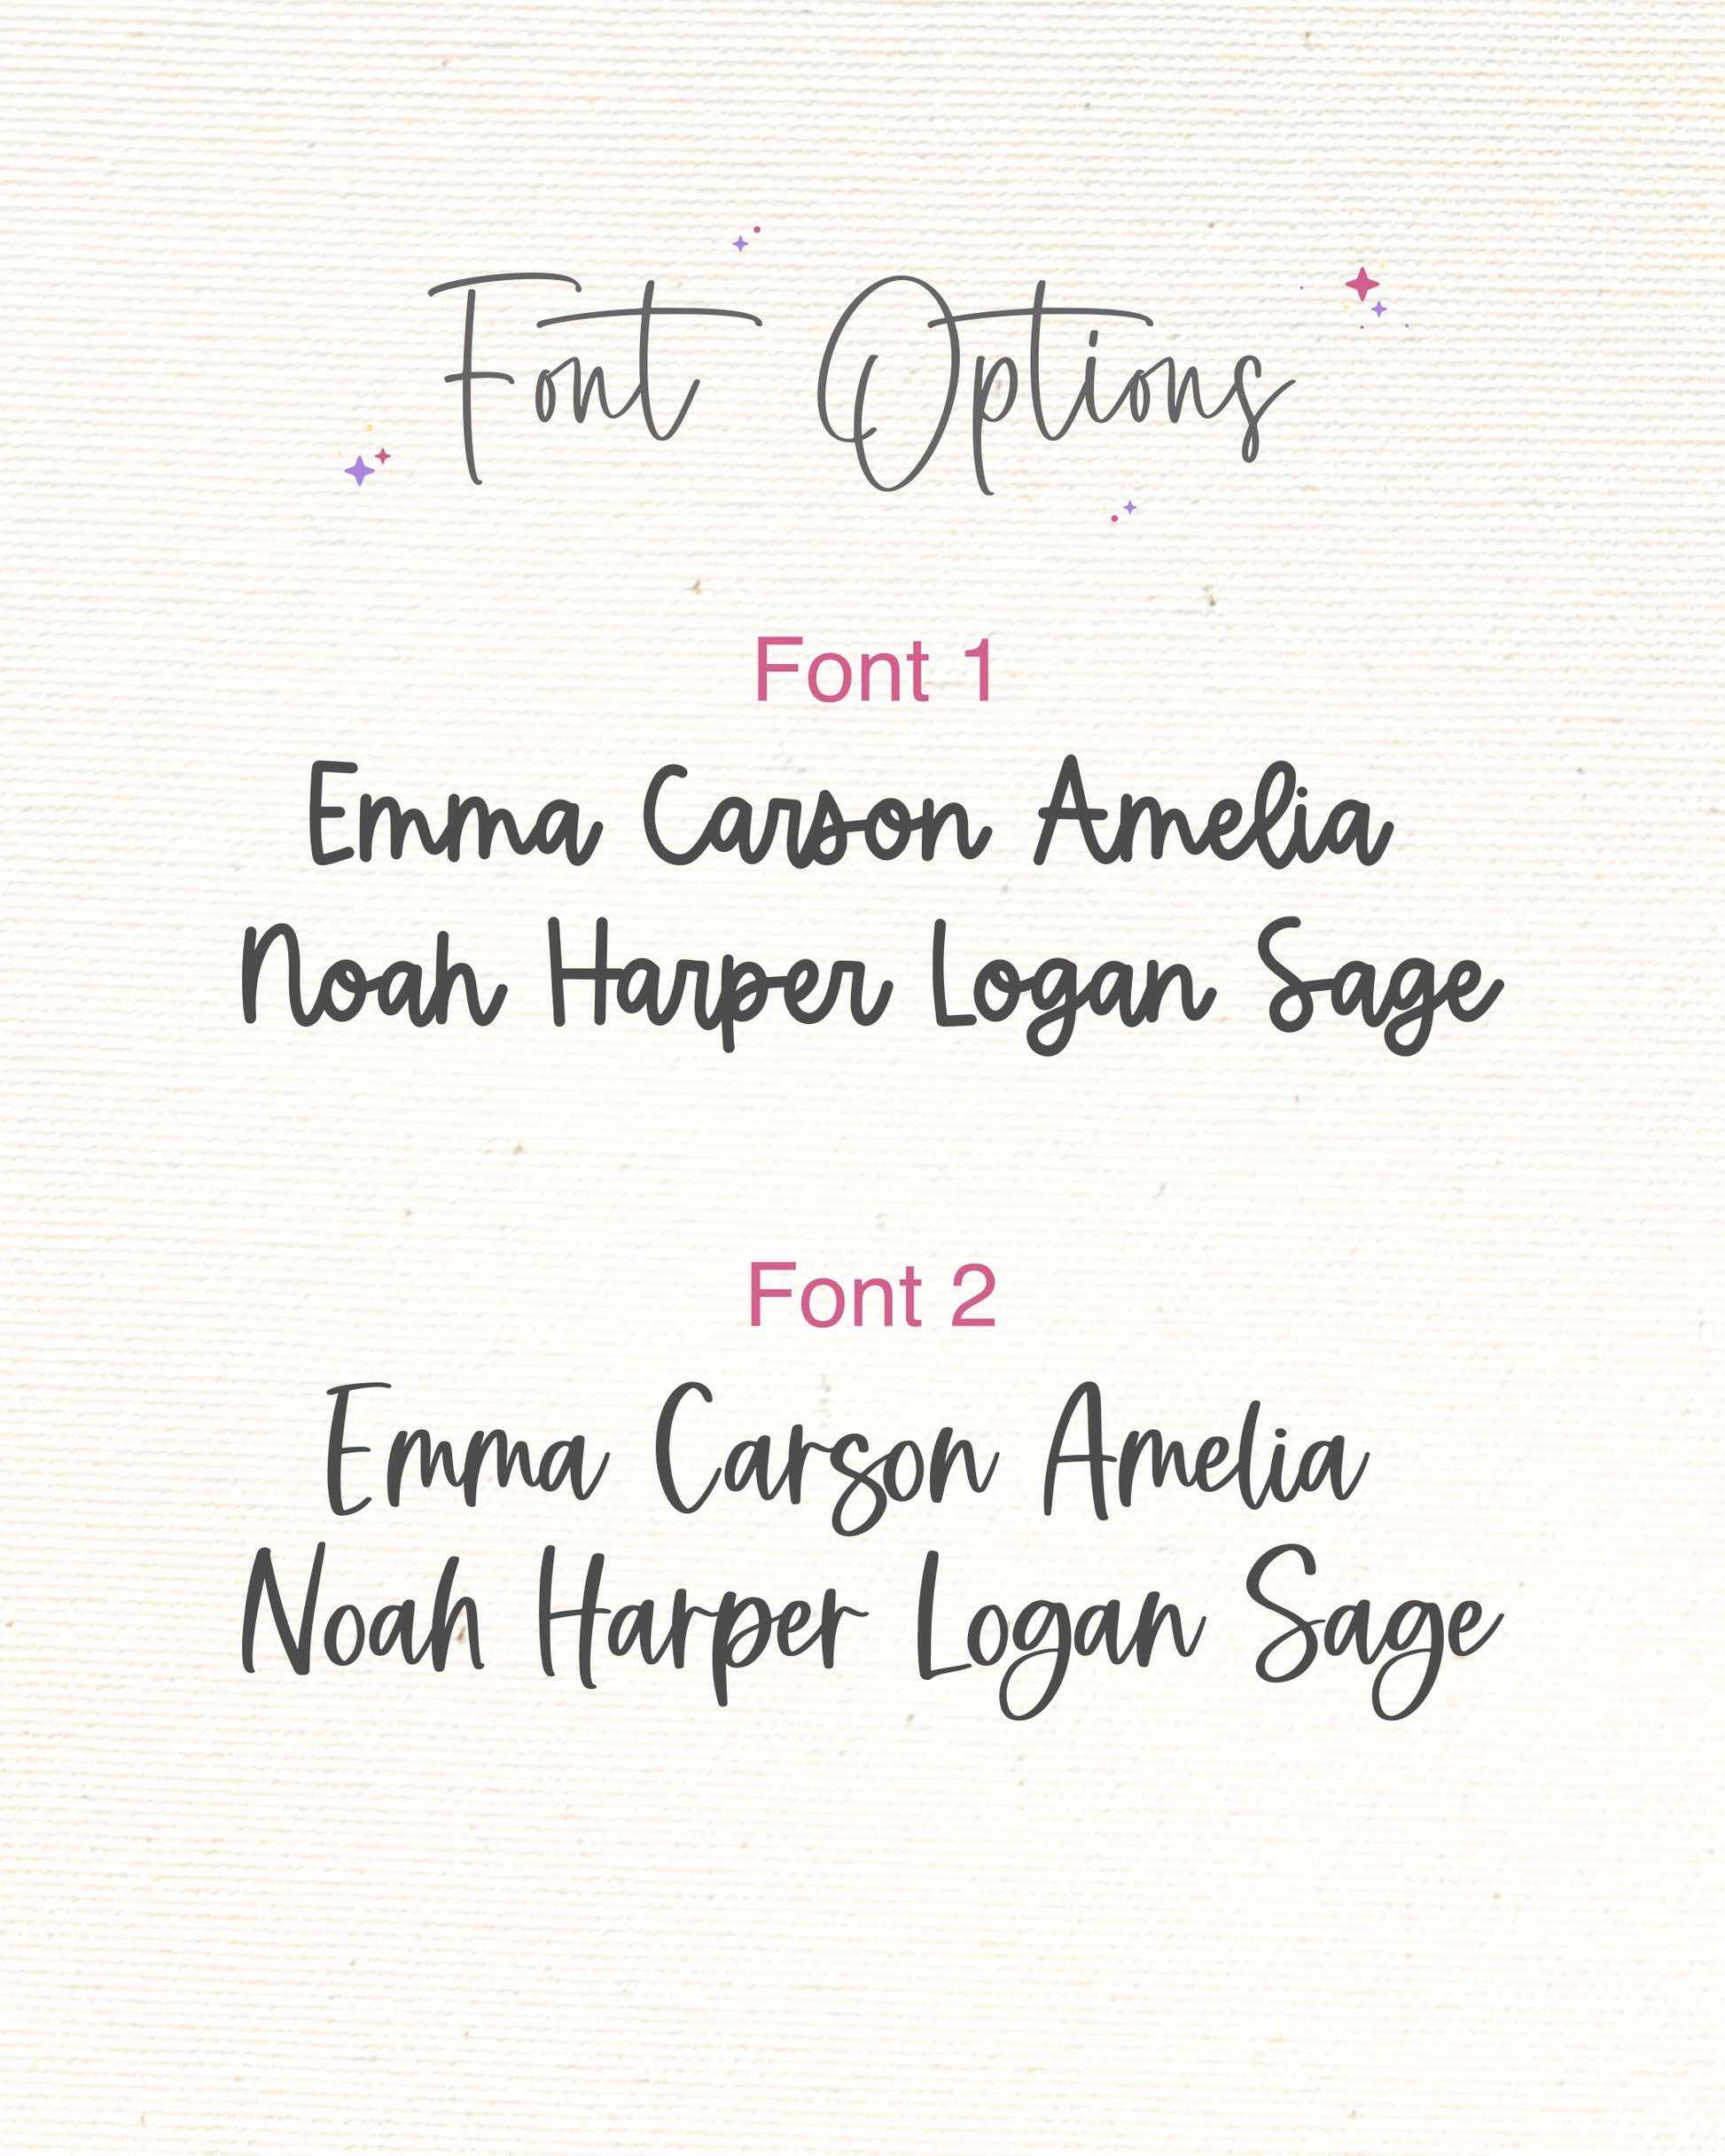 Font Options
Font 1
Emma Carson Amelia
Noah Harper Logan Sage
Font 2
Emma Carson Amelia
Noah Harper Logan Sage